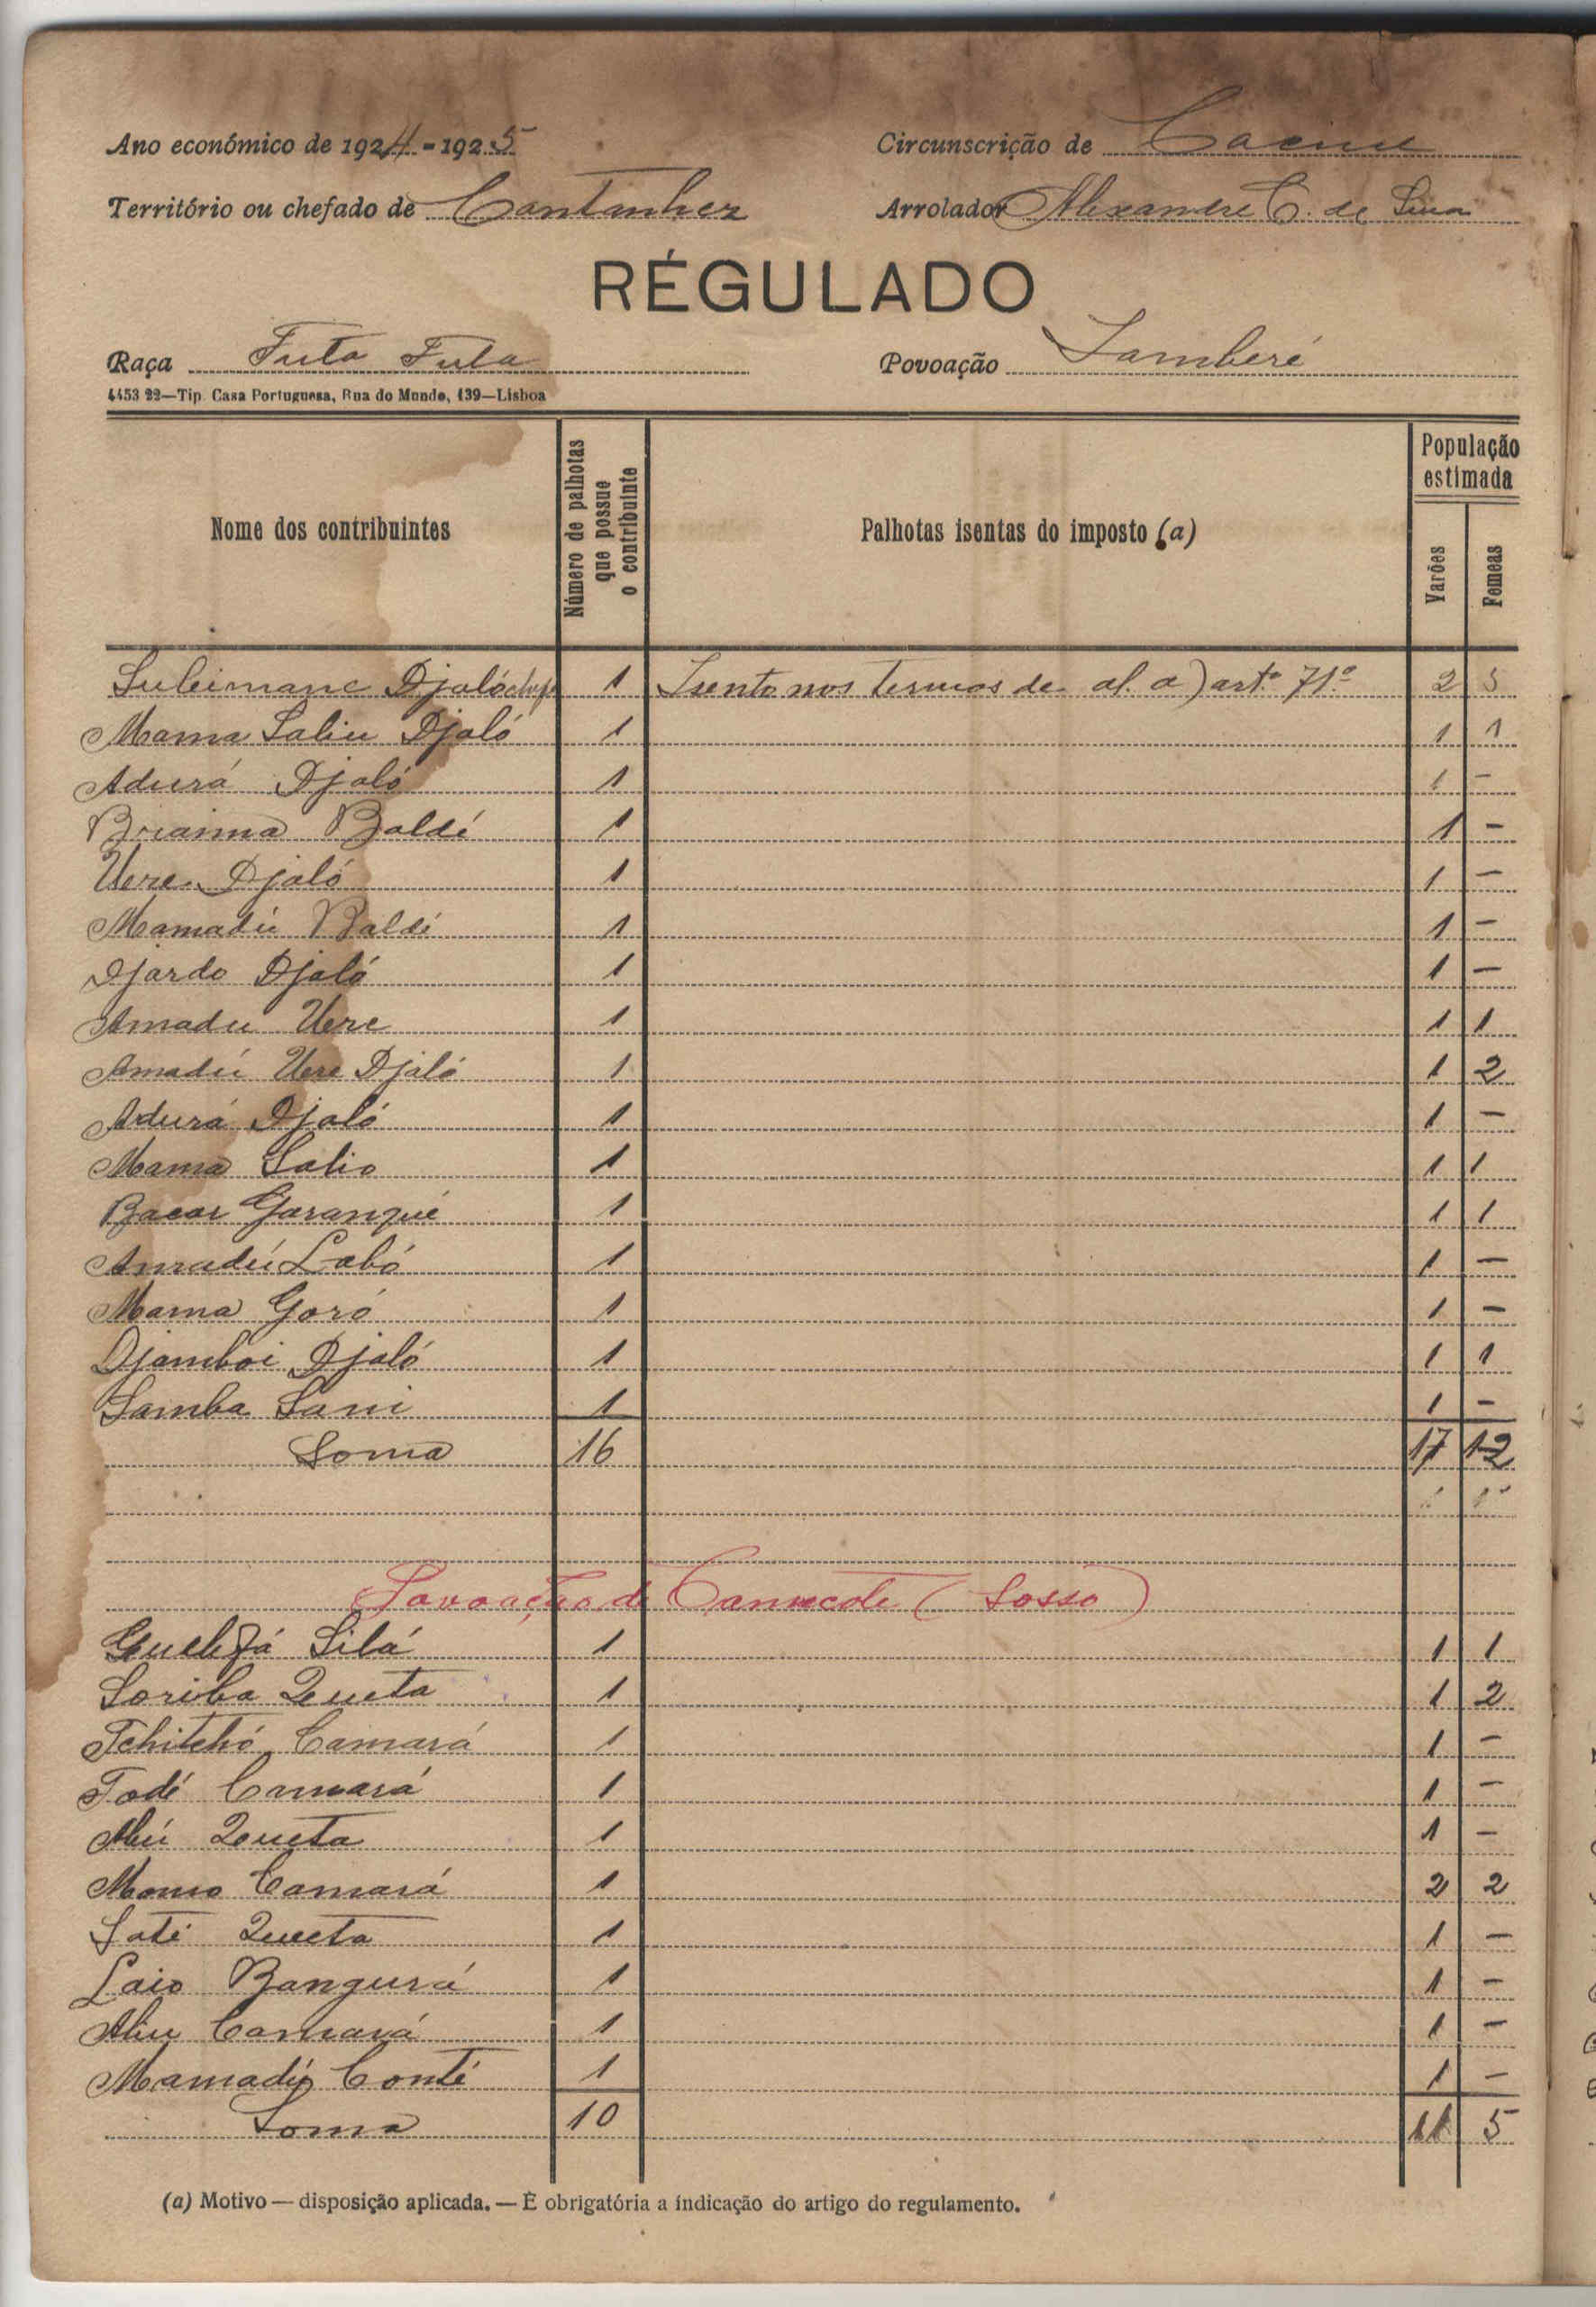 Ano económico de 1924-1925 Circunscrição de Cacine
Território ou chefado de Cantanhez Arrolador Alexandre C. de Lima
RÉGULADO
Raça Futa Fula Povoação Iamberé
4453 22—Tip. Casa Portuguesa, Rua do Mundo, 139—Lisboa
Nome dos contribuintes Número de palhotas que possue o contribuinte Palhotas isentas do imposto (a) População estimada Varões Femeas
Suleimane Djaló chefe 1 Isento nos termos de al. a) artº 71º 2 5
Mama Saliu Djaló 1 1 1
Adurá Djaló 1 1 -
Braima Baldé 1 1 -
Uere Djaló 1 1 -
Mamadú Baldé 1 1 -
Djardo Djaló 1 1 -
Amadu Uere 1 1 1
Amadú Uere Djaló 1 1 2
Adurá Djaló 1 1 -
Mama Salio 1 1 1
Bacar Garanqué 1 1 1
Amadú Labó 1 1 -
Mama Goró 1 1 -
Djamboi Djaló 1 1 1
Samba Sani 1 1 -
Soma 16 17 12
Povoação de Camecote (Sosso)
Silá 1 1 1
Soriba Queta 1 1 2
Tchitchó Camará 1 1 -
Fodé Camará 1 1 -
Aliú Queta 1 1 -
Momo Camará 1 2 2
Sati Queeta 1 1 -
Laio Bangurá 1 1 -
Aliu Camará 1 1 -
Mamadú Conté 1 1 -
Soma 10 11 5
(a) Motivo — disposição aplicada. — É obrigatória a indicação do artigo do regulamento.